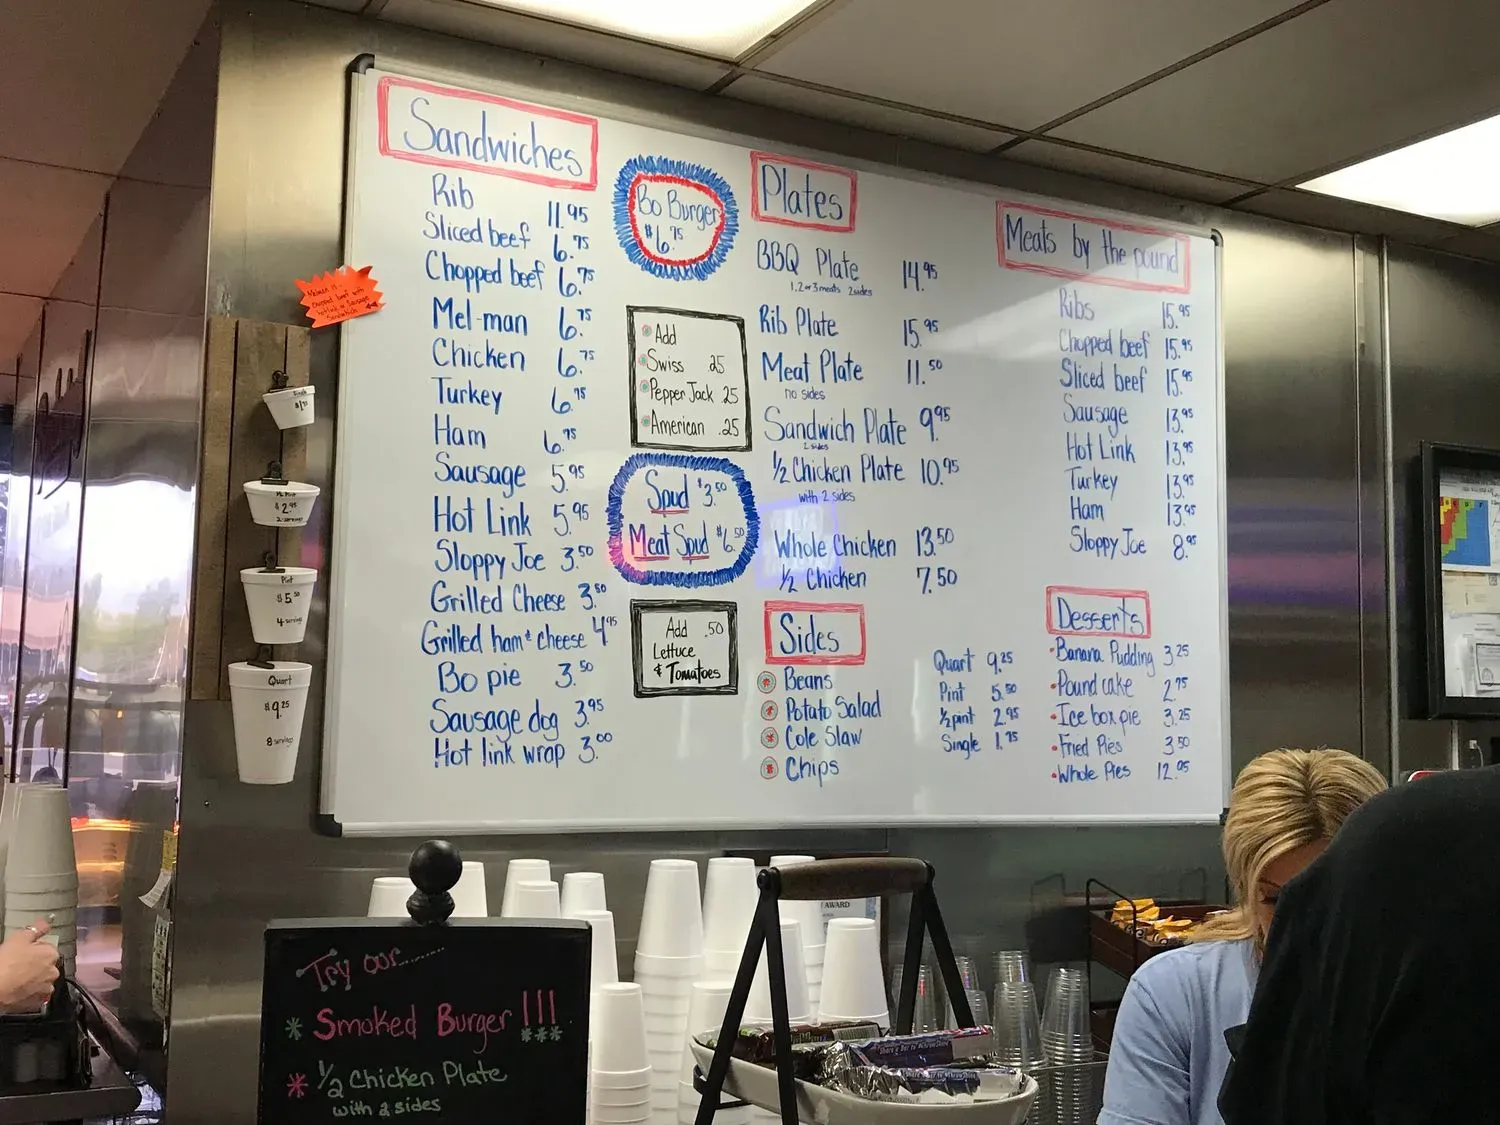 Sandwiches
Rib 11.95
Sliced beef 6.75
Chopped beef 6.75
Mel-man 6.75
Chicken 6.75
Turkey 6.75
Ham 6.75
Sausage 5.95
Hot Link 5.95
Sloppy Joe 3.50
Grilled Cheese 3.50
Grilled ham & cheese 4.95
Bo pie 3.50
Sausage dog 3.95
Hot link wrap 3.00
Bo Burger
$6.75
Add
Swiss .25
Pepper Jack .25
American .25
Spud $3.50
Meat Spud $6.50
Add .50
Lettuce
& Tomatoes
Plates
BBQ Plate 14.95
1, 2 or 3 meats 2 sides
Rib Plate 15.95
Meat Plate 11.50
no sides
Sandwich Plate 9.95
2 sides
1/2 Chicken Plate 10.95
with 2 sides
Whole Chicken 13.50
1/2 Chicken 7.50
Sides
Beans
Potato Salad
Cole Slaw
Chips
Quart 9.25
Pint 5.50
1/2 pint 2.95
Single 1.75
Meats by the pound
Ribs 15.95
Chopped beef 15.95
Sliced beef 15.95
Sausage 13.95
Hot Link 13.95
Turkey 13.95
Ham 13.95
Sloppy Joe 8.95
Desserts
Banana Pudding 3.25
Pound cake 2.75
Ice box pie 3.25
Fried Pies 3.50
Whole Pies 12.95
Melman is
chopped beef with
hot link or sausage
Sandwich
Single
$1.75
1/2 Pint
$2.95
2 servings
Pint
$5.50
4 servings
Quart
$9.25
8 servings
Try our........
* Smoked Burger !!!
* 1/2 Chicken Plate
with 2 sides
AWARD